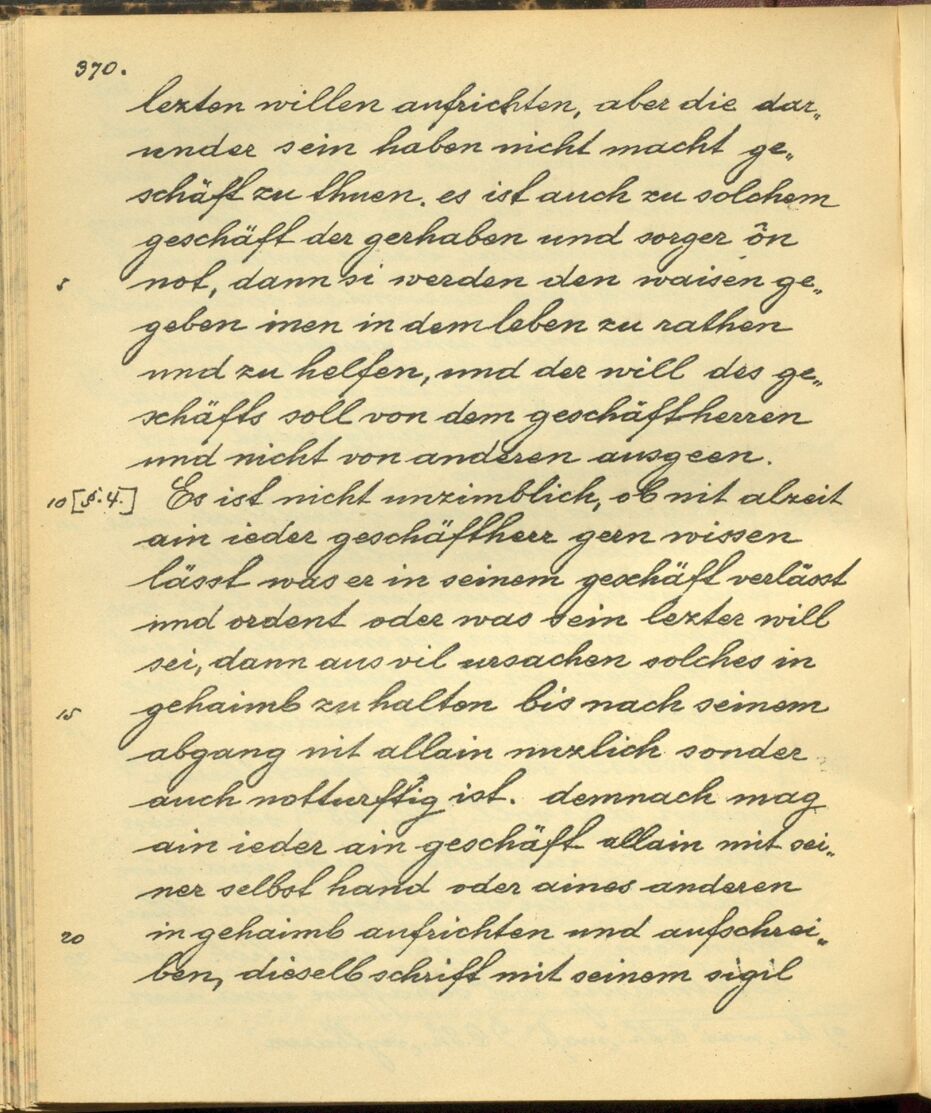 370.
lezten willen aufrichten, aber die dar„
under sein haben nicht macht ge„
schäft zu thuen. es ist auch zu solchem
geschäft der gerhaben und sorger ôn
5 not, dann si werden den waisen ge„
geben inen in dem leben zu rathen
und zu helfen, und der will des ge„
schäfts soll von dem geschäftherren
und nicht von anderen ausgeen.
10 [§. 4.] Es ist nicht unzimblich, ob nit alzeit
ain ieder geschäftherr gern wissen
lässt was er in seinem geschäft verlässt
und ordent oder was sein lezter will
sei, dann aus vil ursachen solches in
15 gehaimb zu halten bis nach seinem
abgang nit allain nuzlich sonder
auch notturftig ist. demnach mag
ain ieder ain geschäft allain mit sei„
ner selbst hand oder aines anderen
20 in gehaimb aufrichten und aufschrei„
ben, dieselb schrift mit seinem sigil